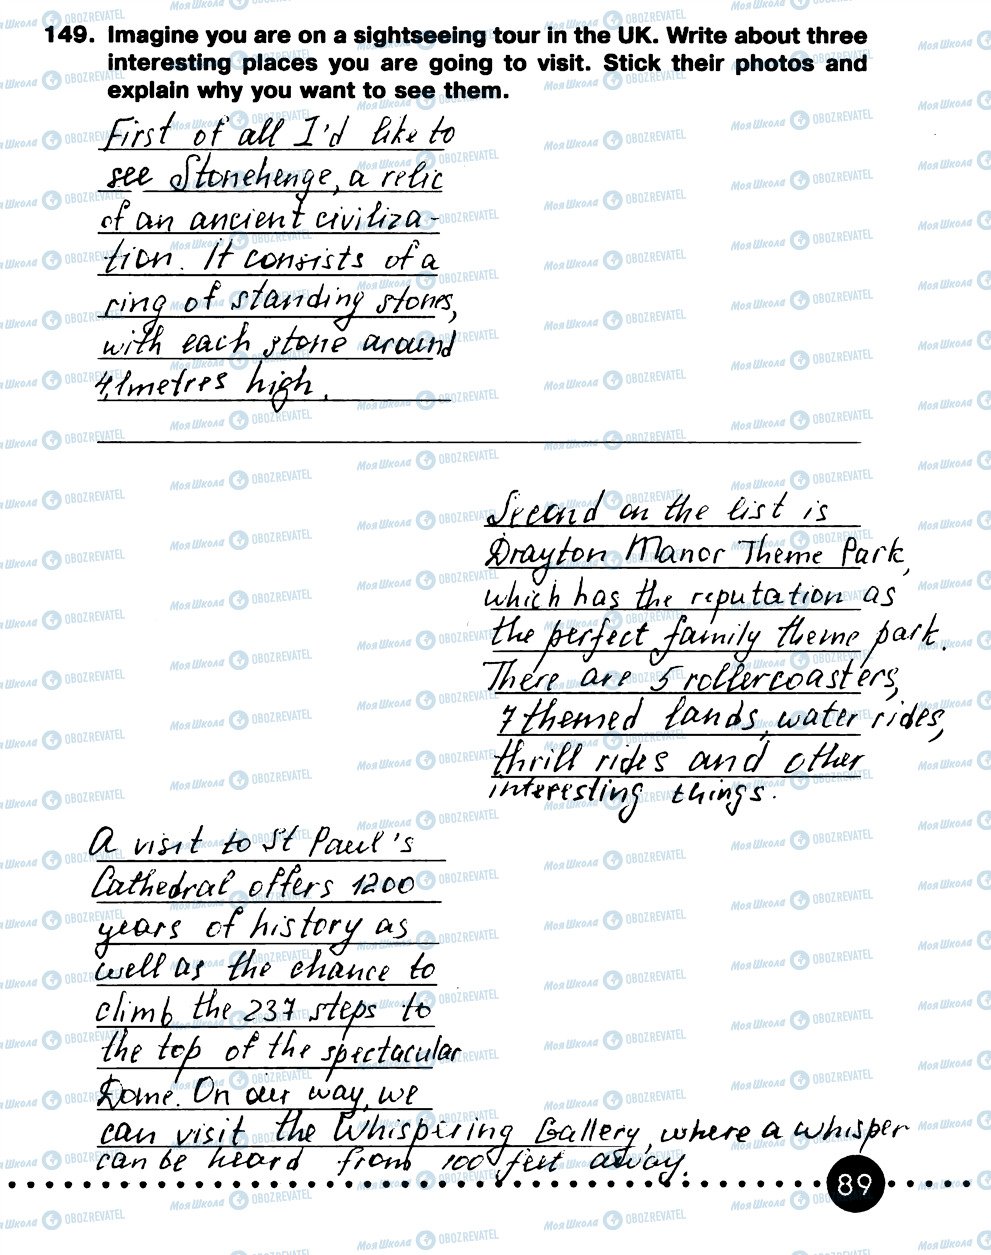 149. Imagine you are on a sightseeing tour in the UK. Write about three
interesting places you are going to visit. Stick their photos and
explain why you want to see them.
First of all I'd like to
see Stonehenge, a relic
of an ancient civiliza-
tion. It consists of a
ring of standing stones,
with each stone around
4,1metres high.
Second on the list is
Drayton Manor Theme Park,
which has the reputation as
the perfect family theme park.
There are 5 rollercoasters,
7 themed lands, water rides,
thrill rides and other
interesting things.
A visit to St Paul's
Cathedral offers 1200
years of history as
well as the chance to
climb the 237 steps to
the top of the spectacular
Dome. On our way, we
can visit the Whispiring Gallery, where a whisper
can be heard from 100 feet away.
89